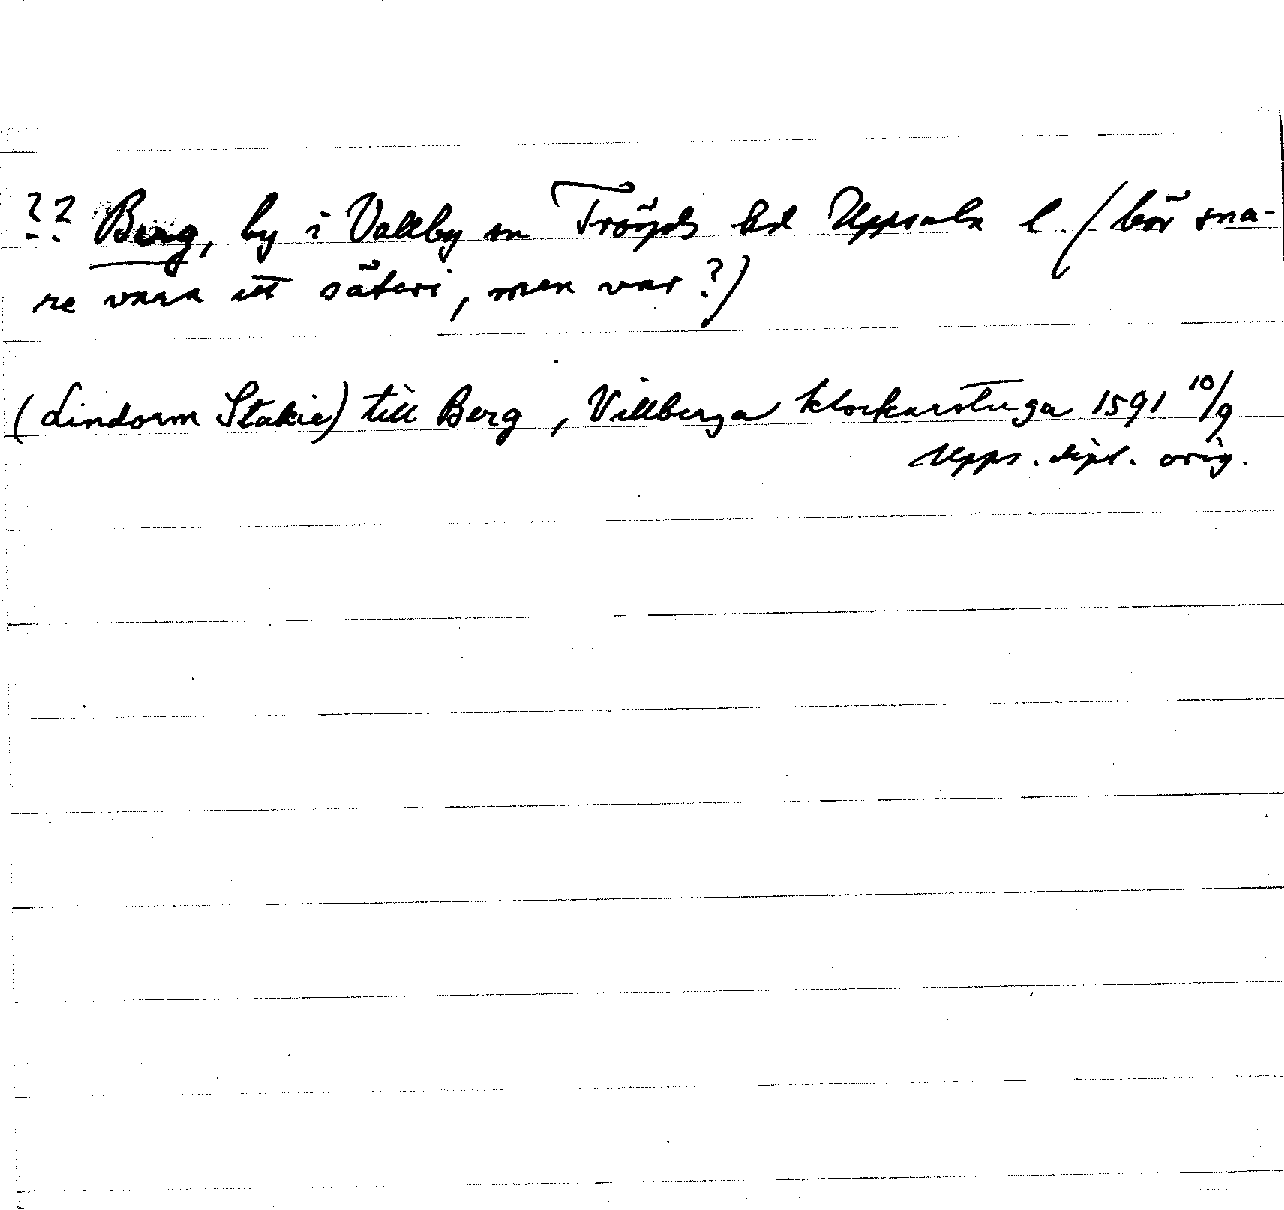 ?? Berg, by i Vallby sn Trögds hd Uppsala l. (bör sna-
re vara ett säteri, men var?)
(Lindorm Stakie) till Berg, Villberga klockarstuga 1591 10/9
Upps. dipl. orig.